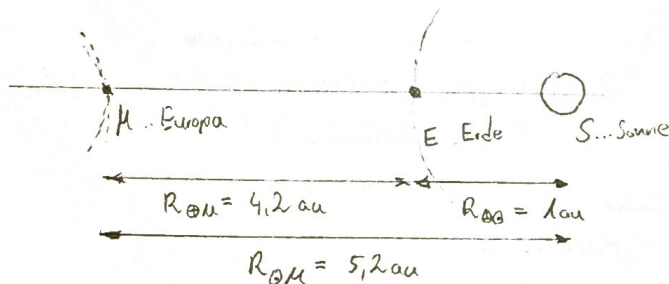 M .. Europa
E Erde
S... Sonne
R⊕M = 4,2 au
R⊙⊕ = 1au
R⊙M = 5,2 au